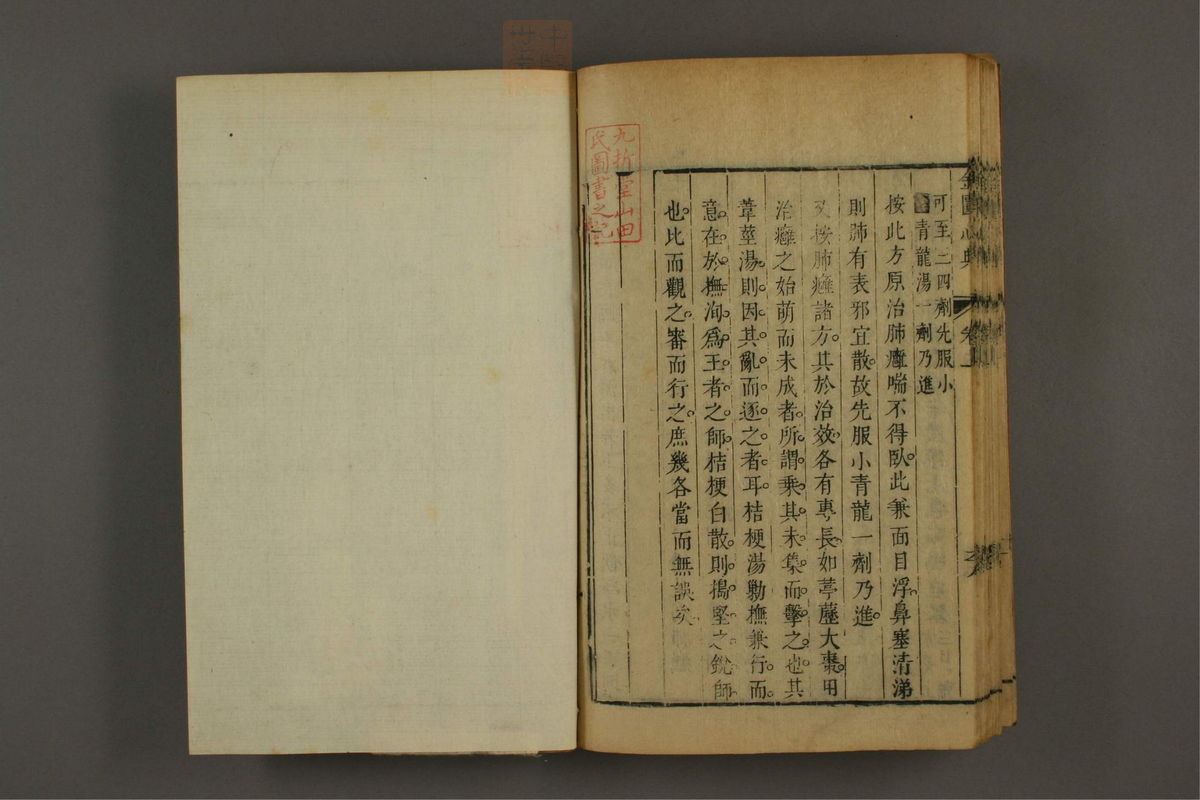 金匱心典
卷上
可至三四劑先服小
青龍湯一劑乃進
按此方原治肺癰喘不得臥此兼面目浮鼻塞清涕
則肺有表邪宜散故先服小青龍一劑乃進
又按肺癰諸方其於治效各有專長如葶藶大棗用
治癰之始萌而未成者所謂乘其未集而擊之也其
葦莖湯則因其亂而逐之者耳桔梗湯勦撫兼行而
意在於撫洵爲王者之師桔梗白散則搗堅之銳師
也比而觀之審而行之庶幾各當而無誤矣
九折堂山田
氏圖書之記